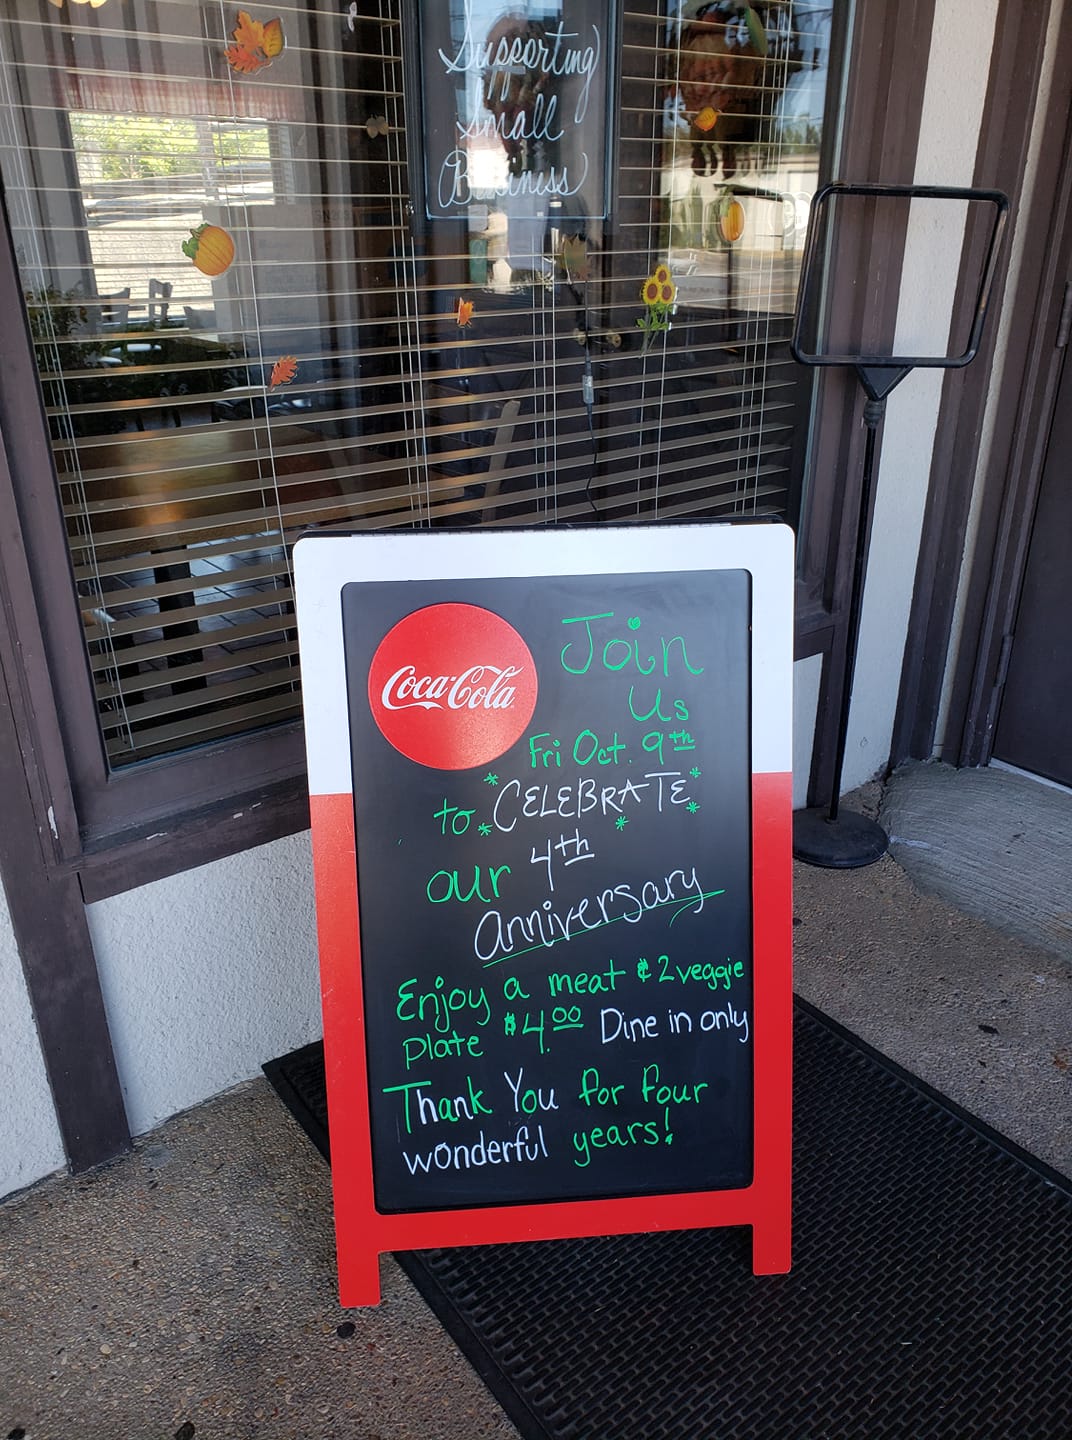 Supporting
Small
Business
Coca-Cola
Join
Us
Fri Oct. 9th
to *CELEBRATE*
our 4th
Anniversary
Enjoy a meat & 2 veggie
plate $4.00 Dine in only
Thank You for four
wonderful years!